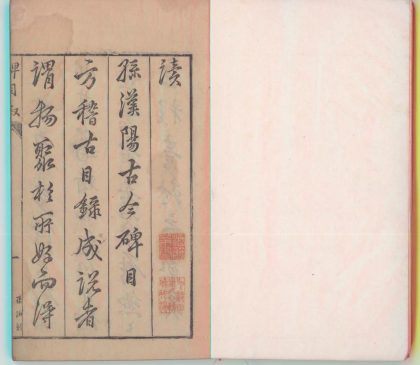 讀
孫漢陽古今碑目
方稽古目錄成說者
謂物聚於所好而得
碑目敘
一